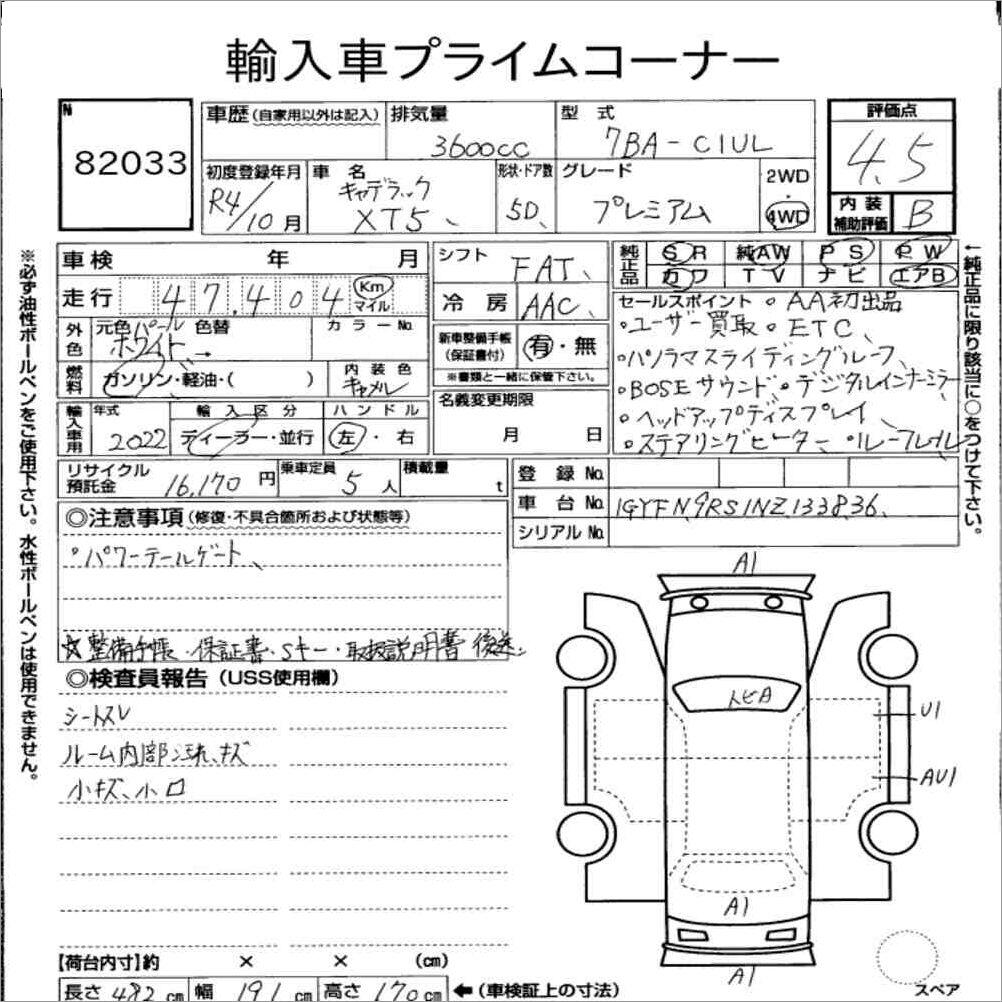 輸入車プライムコーナー
N
82033
車歴 (自家用以外は記入)
排気量
3600cc
型 式
7BA-C1UL
評価点
4.5
初度登録年月
R4/10月
車 名
キャデラック
XT5
形状・ドア数
5D
グレード
プレミアム
2WD
4WD
内装
補助評価
B
車検 年 月
走行 47,404 Km
マイル
シフト
FAT
冷房
AAC
純正品
SR 純AW PS PW
カワ TV ナビ エアB
外色
元色 パールホワイト 色替
カラーNo.
燃料
ガソリン・軽油・( )
内装色
キャメル
新車整備手帳
(保証書付)
有・無
※書類と一緒に保管下さい。
名義変更期限
月 日
セールスポイント ・AA初出品
・ユーザー買取 ・ETC
・パノラマスライディングルーフ
・BOSEサウンド ・デジタルインナーミラー
・ヘッドアップディスプレイ
・ステアリングヒーター ・ルーフレイル
輸入車用
年式
2022
輸入区分
ディーラー・並行
ハンドル
左・右
リサイクル
預託金
16,170円
乗車定員
5人
積載量
t
登録No.
車台No.
1GYFN9RS1NZ133836
シリアルNo.
◎注意事項 (修復・不具合箇所および状態等)
・パワーテールゲート
☆整備手帳・保証書・Sキー・取扱説明書 後送
◎検査員報告 (USS使用欄)
シートスレ
ルーム内部汚れ、キズ
小キズ、小凹
A1
トビA
U1
AU1
A1
A1
スペア
【荷台内寸】約 × × (cm)
長さ 482 cm 幅 191 cm 高さ 170 cm ←(車検証上の寸法)
※必ず油性ボールペンをご使用下さい。水性ボールペンは使用できません。
←純正品に限り該当に○をつけて下さい。